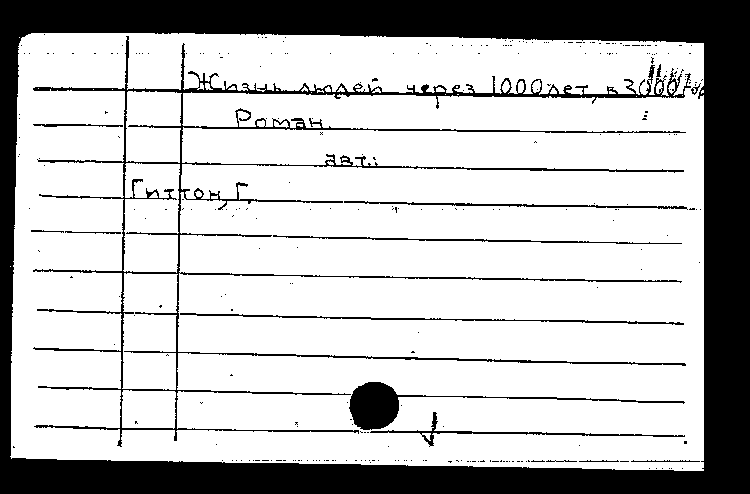 Жизнь людей через 1000 лет, в 3000
Роман.
авт.:
Гиттон, Г.